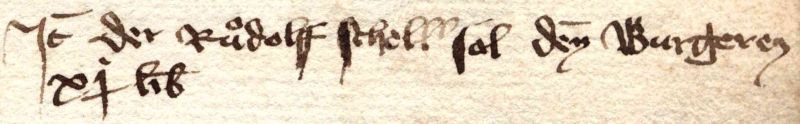 Jt der Růdolff scholl sol den Burgeren
xj lib